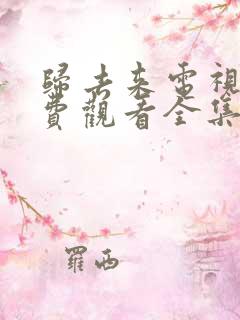 歸去來電視
費觀看全集
羅西